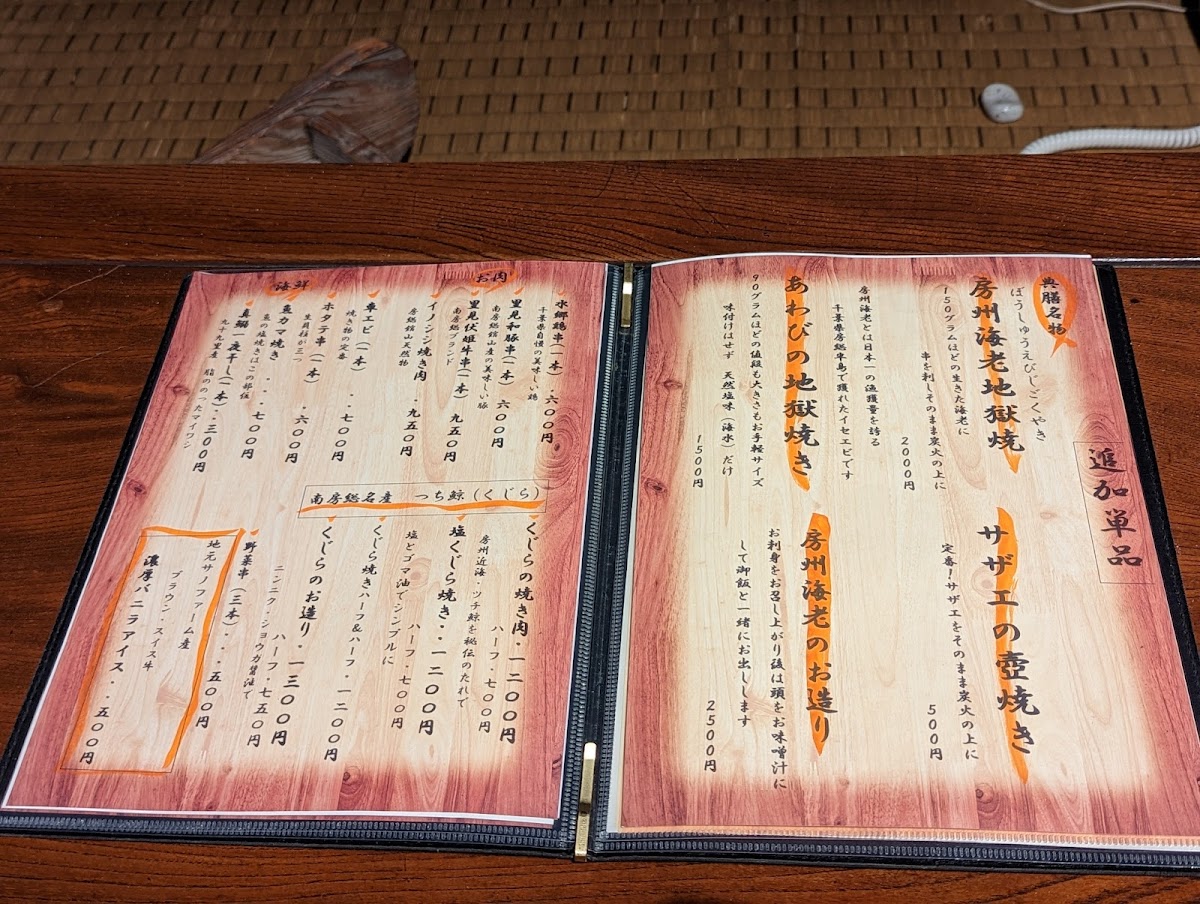 追加単品
典膳名物
ぼうしゅうえびじごくやき
房州海老地獄焼
150グラムほどの生きた海老に
串を刺しそのまま炭火の上に
2000円
房州海老とは日本一の漁獲量を誇る
千葉県房総半島で獲れたイセエビです
あわびの地獄焼き
90グラムほどの値段も大きさもお手軽サイズ
味付けはせず 天然塩味(海水)だけ
1500円
サザエの壺焼き
定番!サザエをそのまま炭火の上に
500円
房州海老のお造り
お刺身をお召し上がり後は頭をお味噌汁に
して御飯と一緒にお出しします
2500円
お肉
水郷鶏串(一本)・六〇〇円
千葉県自慢の美味しい鶏
里見和豚串(一本)六〇〇円
南房総館山産の美味しい豚
里見伏姫牛串(一本)九五〇円
南房総ブランド
イノシシ焼き肉・・九五〇円
房総館山天然物
海鮮
車エビ(一本)・・七〇〇円
焼き物の定番
ホタテ串(一本)・・六〇〇円
生貝柱が三つ
魚カマ焼き・・・七〇〇円
魚の塩焼きはこの部位
真鰯一夜干し(一本)・・三〇〇円
九十九里産 脂ののったマイワシ
南房総名産 つち鯨(くじら)
くじらの焼き肉・一二〇〇円
ハーフ・七〇〇円
房州近海・ツチ鯨を秘伝のたれで
塩くじら焼き・・一二〇〇円
ハーフ・七〇〇円
塩とゴマ油でシンプルに
くじら焼きハーフ&ハーフ・一二〇〇円
くじらのお造り・一三〇〇円
ハーフ・七五〇円
ニンニク・ショウガ醤油で
野菜串(三本)・・・五〇〇円
地元サノファーム産
ブラウン・スイス牛
濃厚バニラアイス・・五〇〇円